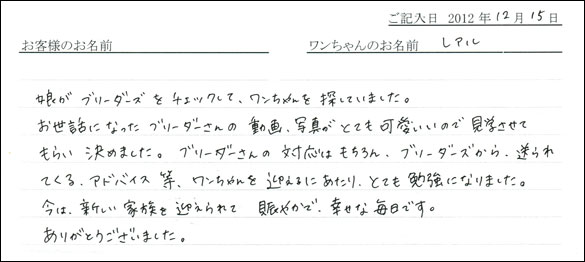 ご記入日 2012年12月15日
お客様のお名前 ワンちゃんのお名前 レアル
娘がブリーダーズをチェックして、ワンちゃんを探していました。
お世話になったブリーダーさんの動画、写真がとても可愛いいので見学させて
もらい決めました。ブリーダーさんの対応はもちろん、ブリーダーズから、送られ
てくる、アドバイス等、ワンちゃんを迎えるにあたり、とても勉強になりました。
今は、新しい家族を迎えられて 賑やかで、幸せな毎日です。
ありがとうございました。